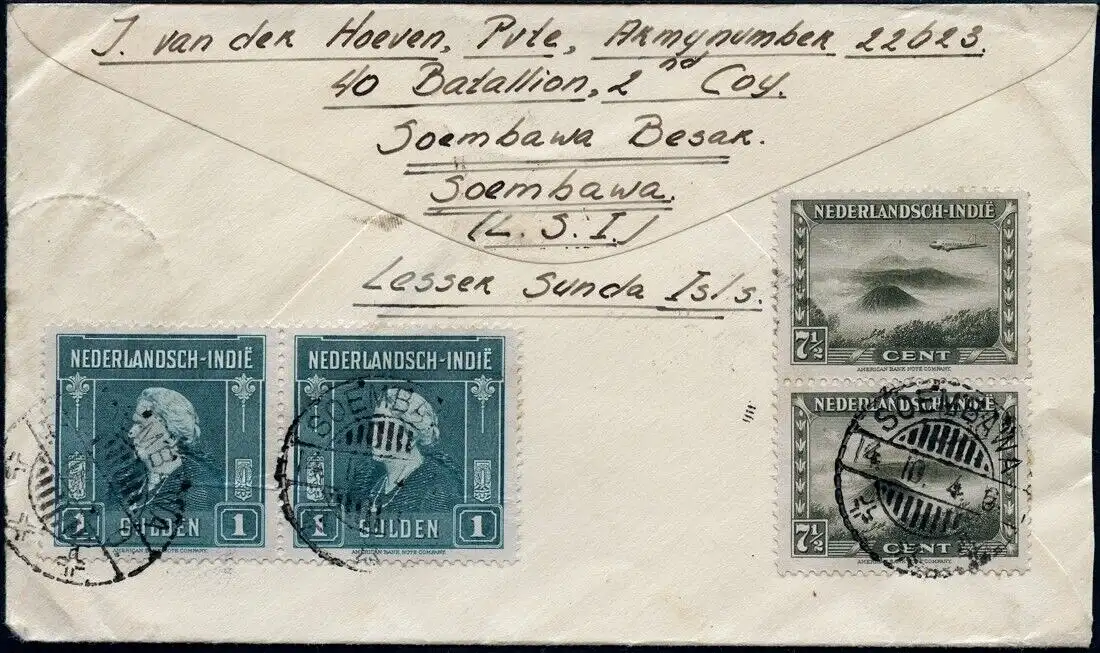 J. van der Hoeven, Pvte, Armynumber 22623.
40 Batallion, 2nd Coy.
Soembawa Besar.
Soembawa.
(L. S. I.)
Lesser Sunda Isls.
NEDERLANDSCH-INDIË
7½ CENT
AMERICAN BANK NOTE COMPANY.
NEDERLANDSCH-INDIË
7½ CENT
AMERICAN BANK NOTE COMPANY.
SOEMBAWA
14 10. 4
NEDERLANDSCH-INDIË
1 GULDEN 1
AMERICAN BANK NOTE COMPANY.
NEDERLANDSCH-INDIË
1 GULDEN 1
AMERICAN BANK NOTE COMPANY.
SOEMBA